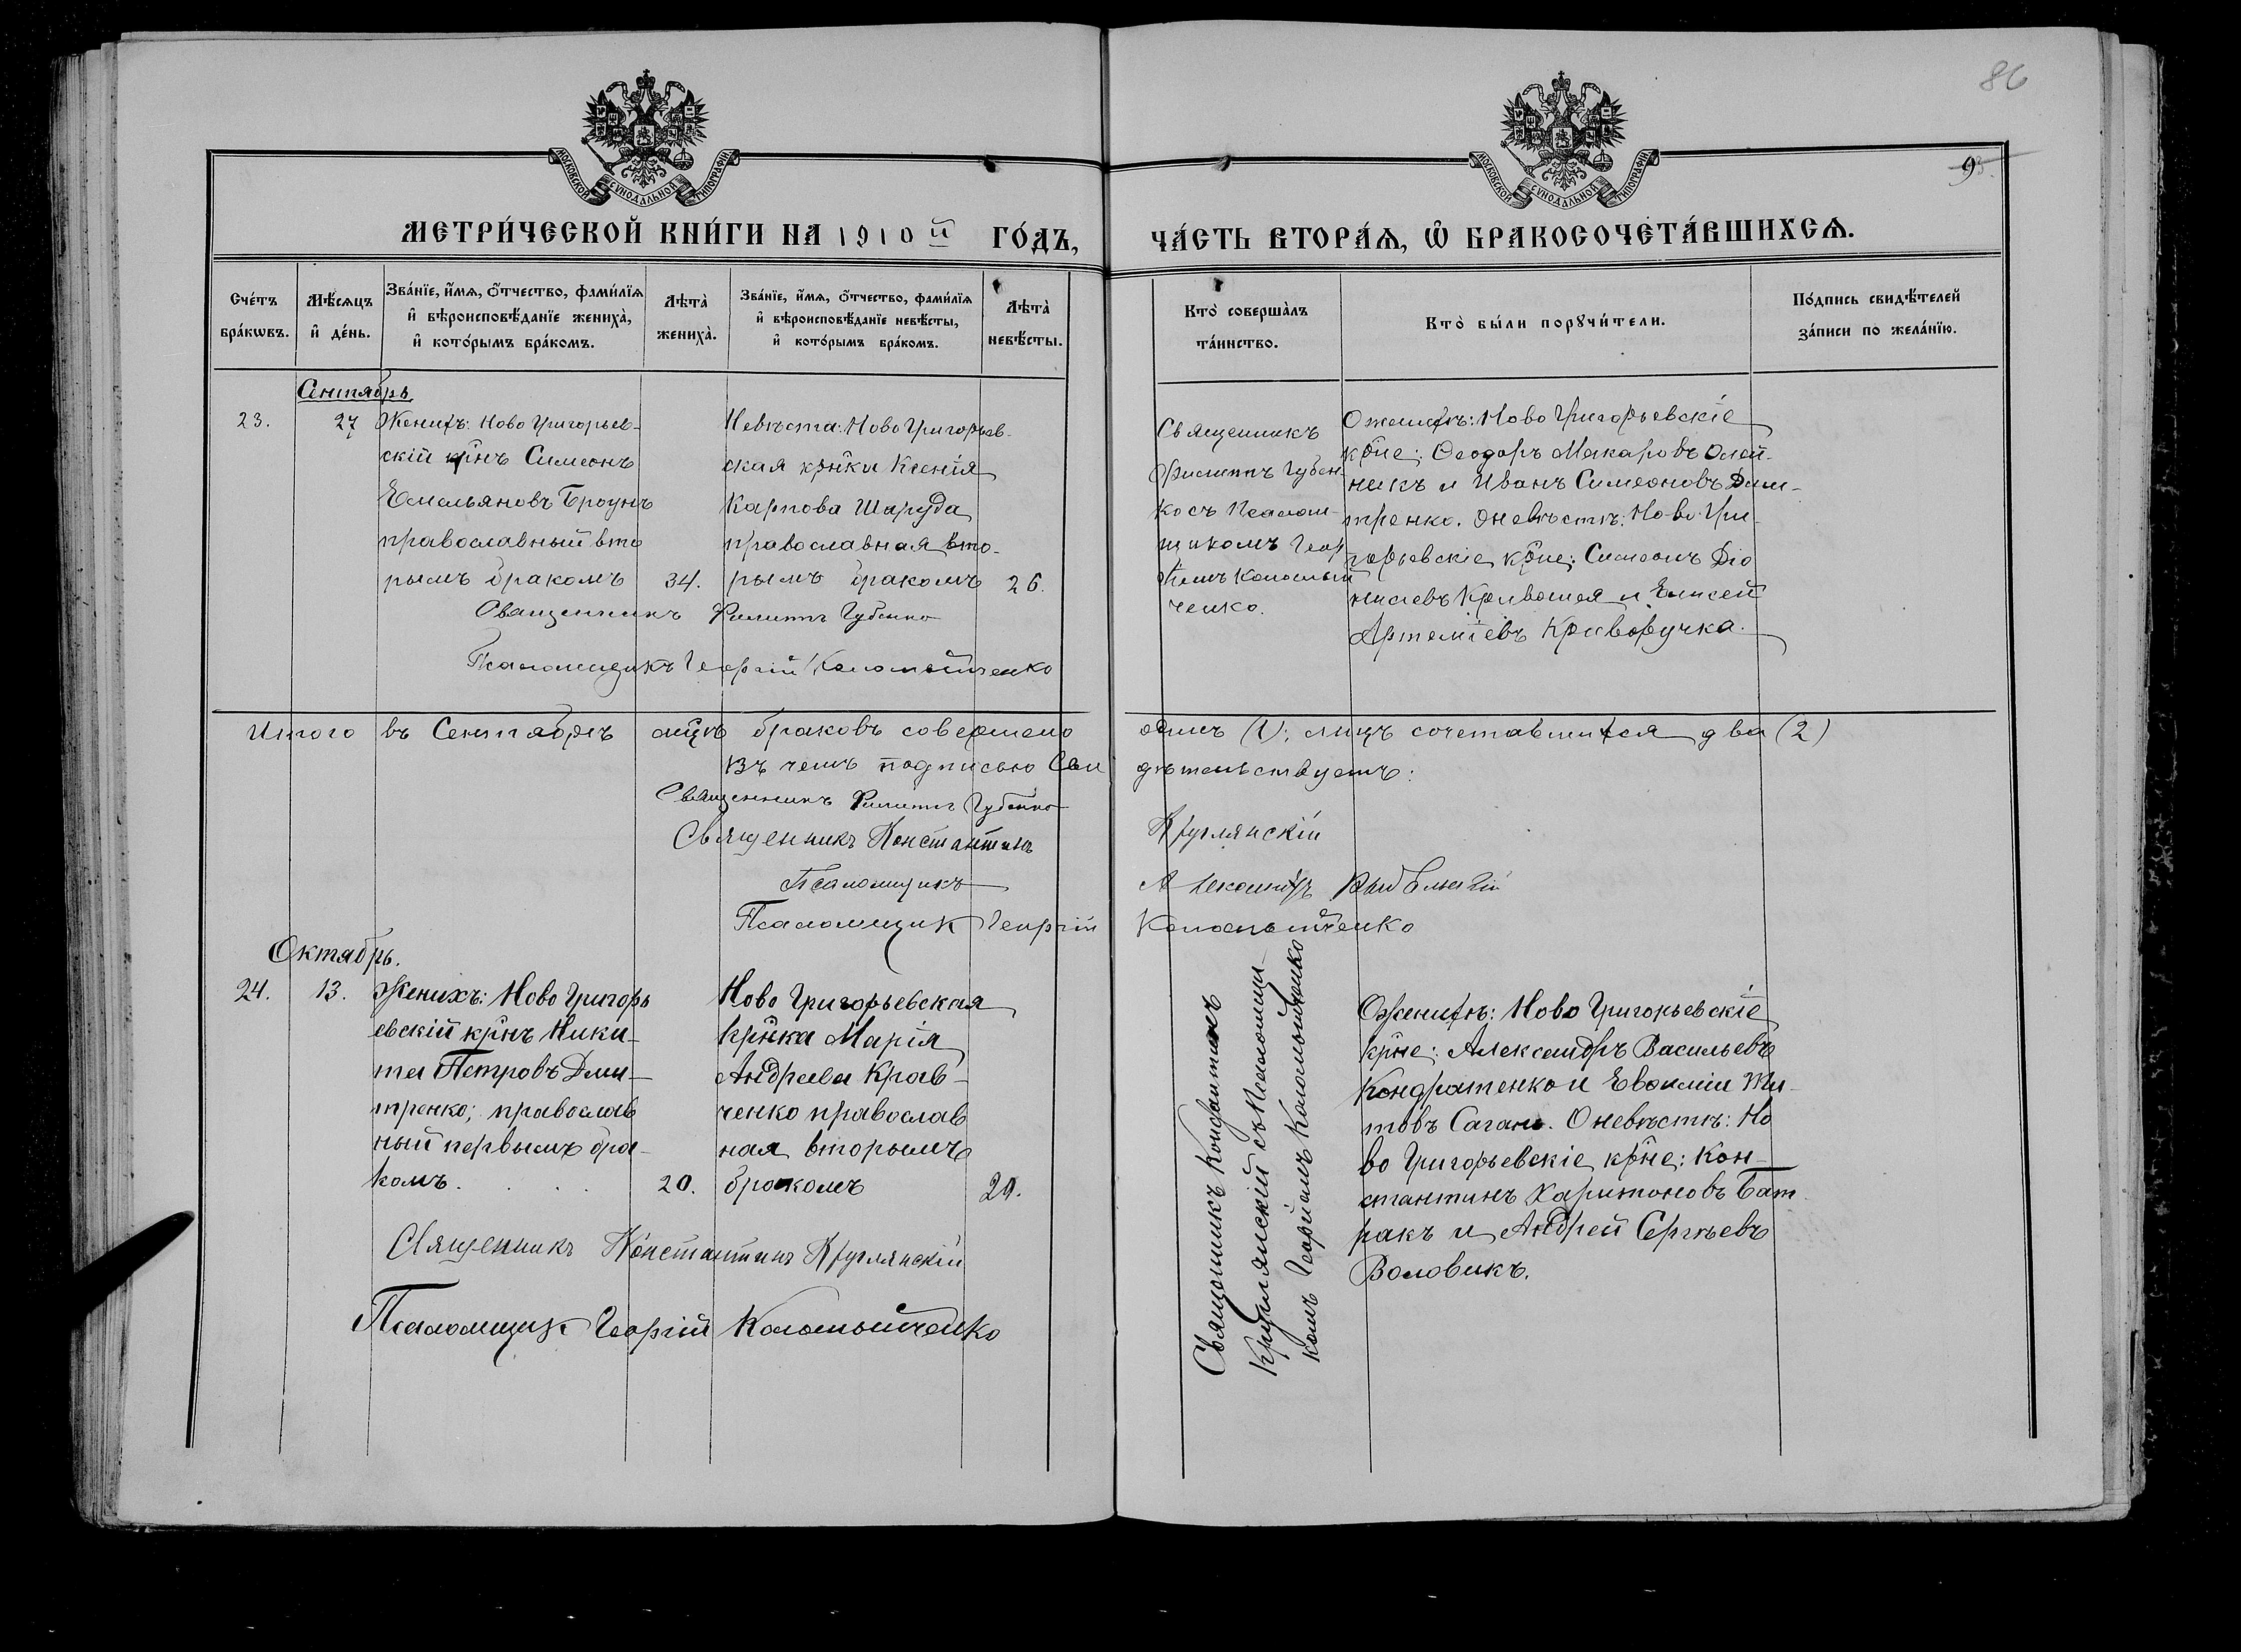 86
95.
МОСКОВСКОЙ СѴНОДАЛЬНОЙ ТИПОГРАФІИ
МОСКОВСКОЙ СѴНОДАЛЬНОЙ ТИПОГРАФІИ
МЕТРИ́ЧЕСКОЙ КНИ́ГИ НА 1910 й ГО́ДЪ,
ЧА́СТЬ ВТОРА́Ѧ, Ѽ БРАКОСОЧЕТА́ВШИХСѦ.
Сче́тъ бра́кѡвъ.
Мѣ́сѧцъ и҆ де́нь.
Зва́нїе, и҆́мѧ, ѻ҆́тчество, фами́лїѧ
и҆ вѣроисповѣ́данїе жениха̀,
и҆ кото́рымъ бра́комъ.
Лѣта̀ жениха̀.
Зва́нїе, и҆́мѧ, ѻ҆́тчество, фами́лїѧ
и҆ вѣроисповѣ́данїе невѣ́сты,
и҆ кото́рымъ бра́комъ.
Лѣта̀ невѣ́сты.
Кто̀ соверша́лъ
та́инство.
Кто̀ бы́ли порꙋчи́тели.
По́дпись свидѣ́телей
за́писи по жела́нїю.
Сентябрь
23.
27
Женихъ: Ново Григорьев-
скій крнъ Симеонъ
Емельяновъ Броунъ
православный вто
рымъ бракомъ
34.
Невѣста: Ново Григорьев-
ская крнка Ксенія
Карпова Шаруда
православная вто-
рымъ бракомъ
26.
Священникъ
Филиппъ Губен-
ко съ Псалом-
щикомъ Геор
гіемъ Коломый
ченко.
О женихѣ: Ново Григорьевскіе
крне: Ѳеодоръ Макаровъ Олей-
никъ и Иванъ Симеоновъ Дми-
тренко. О невѣстѣ: Ново Гри-
горьевскіе крне: Симеонъ Діо
нисіевъ Кривошея и Елисей
Артеміевъ Криворучка.
Священникъ Филиппъ Губенко
Псаломщикъ Георгій Коломыйченко
Итого въ Сентябрѣ мцѣ браковъ совершено одинъ (1); лицъ сочетавшихся два (2)
Въ чемъ подписью Сви дѣтельствуемъ:
Священникъ Филиппъ Губенко
Священникъ Константинъ Круглянскій
Псаломщикъ Александръ
Псаломщик Георгій Коломыйченко
Октябрь.
24.
13.
Женихъ: Ново Григорь
евскій крнъ Ники-
та Петровъ Дми-
тренко; православ
ный первымъ бра-
комъ.
20.
Ново Григорьевская
крнка Марія
Андреева Крав-
ченко православ
ная вторымъ
бракомъ
29.
Священникъ Константинъ
Круглянскій съ Псаломщи-
комъ Георгіемъ Коломыйченко
О женихѣ: Ново Григорьевскіе
крне: Александръ Васильевъ
Кондратенко и Евѳимій Ти-
товъ Саганъ. О невѣстѣ: Но
во Григорьевскіе крне: Кон-
стантинъ Харитоновъ Бат
ракъ и Андрей Сергѣевъ
Воловикъ.
Священникъ Константинъ Круглянскій
Псаломщик Георгій Коломыйченко